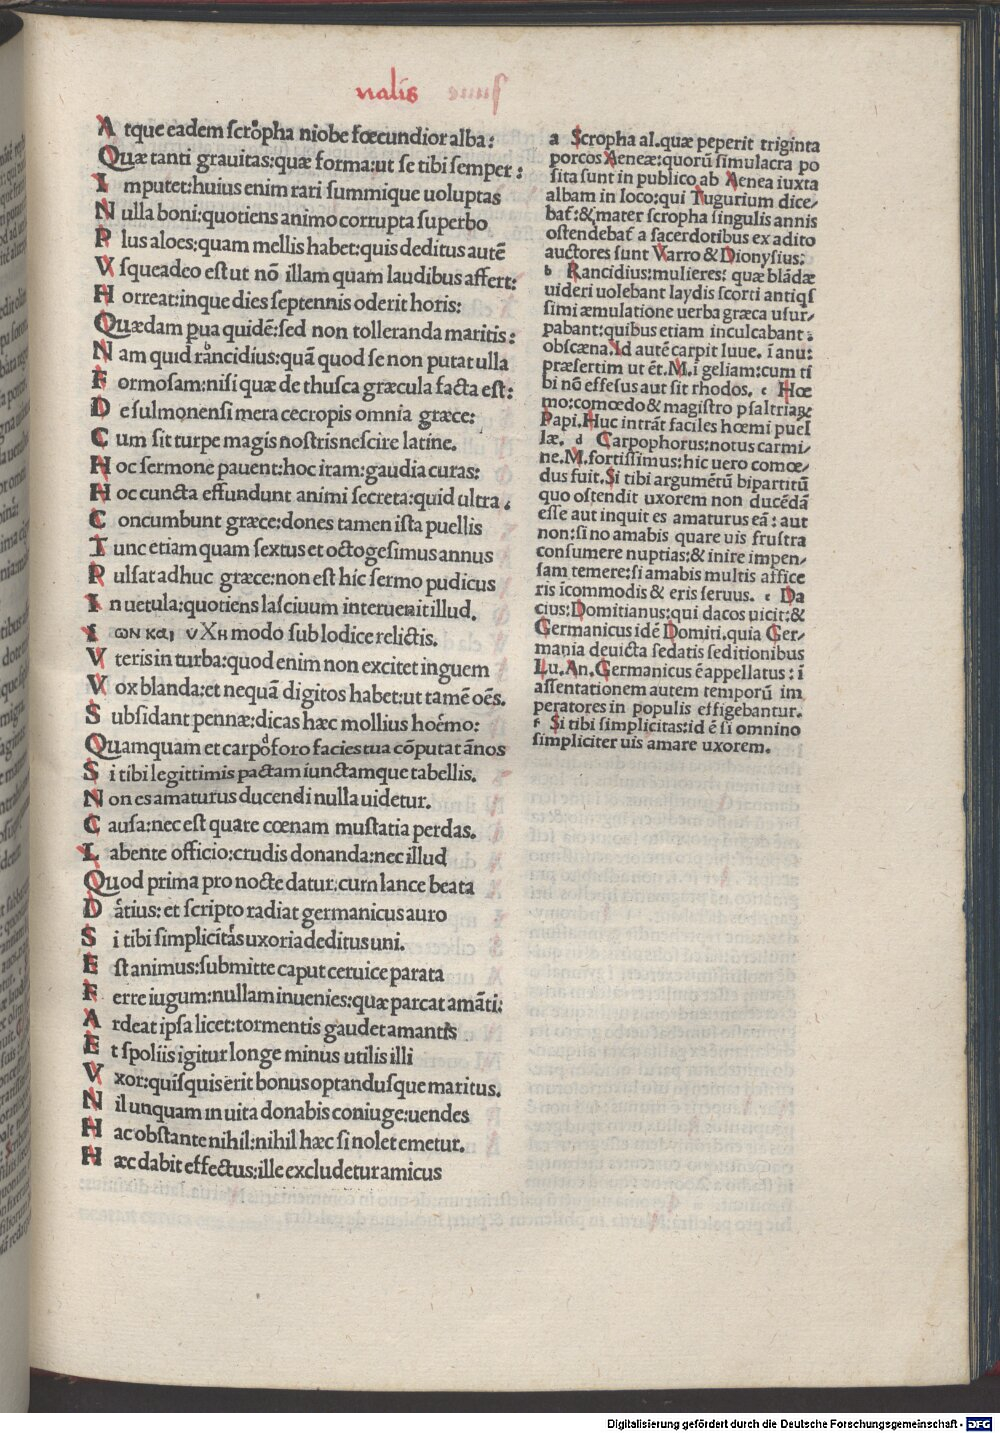 nalis
Atque eadem scropha niobe fœcundior alba:
Quæ tanti grauitas: quæ forma: ut se tibi semper:
Imputet: huius enim rari summique uoluptas
Nulla boni: quotiens animo corrupta superbo
Plus aloes: quam mellis habet: quis deditus autē
Vsqueadeo est ut nō illam quam laudibus affert:
Horreat: inque dies septennis oderit horis:
Quædam pua quidē: sed non tolleranda maritis:
Nam quid rancidius: quā quod se non putat ulla
Formosam: nisi quæ de thusca græcula facta est:
De sulmonensi mera cecropis omnia græce:
Cum sit turpe magis nostris nescire latine.
Hoc sermone pauent: hoc iram: gaudia curas:
Hoc cuncta effundunt animi secreta: quid ultra.
Concumbunt græce: dones tamen ista puellis
Tunc etiam quam sextus et octogesimus annus
Pulsat adhuc græce: non est hic sermo pudicus
In uetula: quotiens lasciuum interuenit illud.
ων και υΧη modo sub lodice relictis.
Vteris in turba: quod enim non excitet inguem
Vox blanda: et nequā digitos habet: ut tamē oēs.
Subsidant pennæ: dicas hæc mollius hoēmo:
Quamquam et carpoforo facies tua cōputat ānos
Si tibi legittimis pactam iunctamque tabellis.
Non es amaturus ducendi nulla uidetur.
Causa: nec est quare cœnam mustatia perdas.
Labente officio: crudis donanda: nec illud
Quod prima pro nocte datur: cum lance beata
Datius: et scripto radiat germanicus auro
Si tibi simplicitas uxoria deditus uni.
Est animus: submitte caput ceruice parata
Ferre iugum: nullam inuenies: quæ parcat amāti:
Ardeat ipsa licet: tormentis gaudet amantis
Et spoliis igitur longe minus utilis illi
Vxor: quisquis erit bonus optandusque maritus.
Nil unquam in uita donabis coniuge: uendes
Hac obstante nihil: nihil hæc si nolet emetur.
Hæc dabit effectus: ille excludetur amicus
a Scropha al. quæ peperit triginta
porcos Aeneæ: quorū simulacra po
sita sunt in publico ab Aenea iuxta
albam in loco: qui Tugurium dice-
bat: & mater scropha singulis annis
ostendebat a sacerdotibus ex adito
auctores sunt Varro & Dionysius:
b Rancidius: mulieres: quæ blādæ
uideri uolebant laydis scorti antiqs
simi æmulatione uerba græca usur-
pabant: quibus etiam inculcabant:
obscæna. Id autē carpit Iuue. ī anu:
præsertim ut ēt. M. i geliam: cum ti
bi nō effesus aut sit rhodos. c Hœ
mo: comœdo & magistro psaltriaȩ
Papi. Huc intrāt faciles hœmi puel
læ. d Carpophorus: notus carmi-
ne. M. fortissimus: hic uero comœ-
dus fuit. Si tibi argumētū bipartitū
quo ostendit uxorem non ducēdā
esse aut inquit es amaturus eā: aut
non: si no amabis quare uis frustra
consumere nuptias: & inire impen-
sam temere: si amabis multis affice
ris icommodis & eris seruus. e Da
cius: Domitianus: qui dacos uicit: &
Germanicus idē Domiti. quia Ger-
mania deuicta sedatis seditionibus
Lu. An. Germanicus ē appellatus: i
assentationem autem temporū im
peratores in populis effigebantur.
f Si tibi simplicitas: id ē si omnino
simpliciter uis amare uxorem.
Digitalisierung gefördert durch die Deutsche Forschungsgemeinschaft - DFG